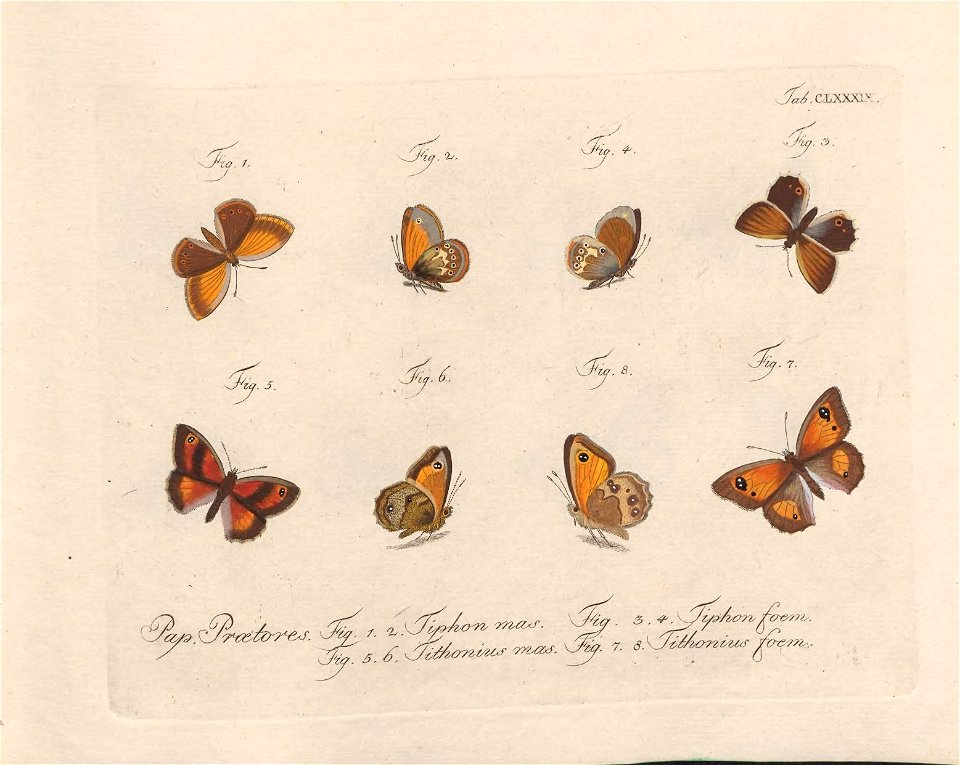 Tab. CLXXXIX.
Fig. 1. Fig. 2. Fig. 4. Fig. 3.
Fig. 5. Fig. 6. Fig. 8. Fig. 7.
Pap. Prætores. Fig. 1. 2. Tiphon mas. Fig. 3. 4. Tiphon foem.
Fig. 5. 6. Tithonius mas. Fig. 7. 8. Tithonius foem.